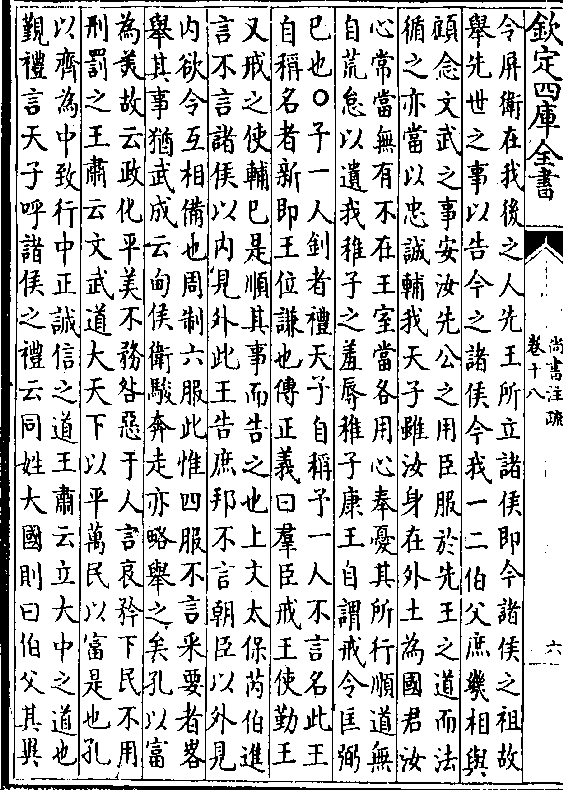 欽定四庫全書
尚書注疏
卷十八
六
令屏衛在我後之人先王所立諸侯即今諸侯之祖故
舉先世之事以告今之諸侯今我一二伯父庶幾相與
顧念文武之事安汝先公之用臣服於先王之道而法
循之亦當以忠誠輔我天子雖汝身在外土為國君汝
心常當無有不在王室當各用心奉憂其所行順道無
自荒怠以遺我稚子之羞辱稚子康王自謂戒令匡弼
已也○予一人釗者禮天子自稱予一人不言名此王
自稱名者新即王位謙也傳正義曰羣臣戒王使勤王
又戒之使輔已是順其事而告之也上文太保芮伯進
言不言諸侯以内見外此王告庶邦不言朝臣以外見
内欲令互相備也周制六服此惟四服不言采要者畧
舉其事猶武成云甸侯衛駿奔走亦略舉之矣孔以富
為美故云政化平美不務咎惡于人言哀矜下民不用
刑罰之王肅云文武道大天下以平萬民以富是也孔
以齊為中致行中正誠信之道王肅云立大中之道也
覲禮言天子呼諸侯之禮云同姓大國則曰伯父其異